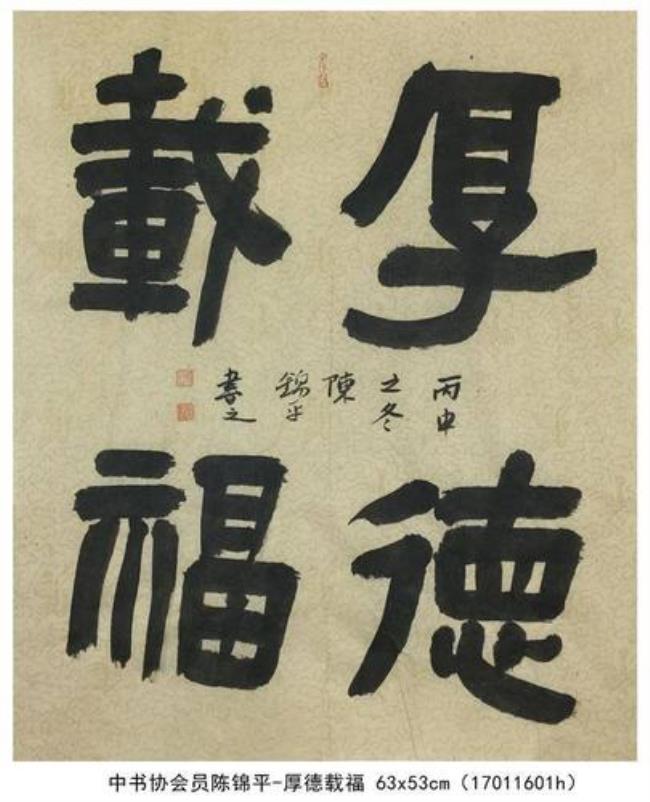 厚德
載福
丙申
之冬
陳
錦平
書之
中书协会员陈锦平-厚德载福 63x53cm（17011601h）